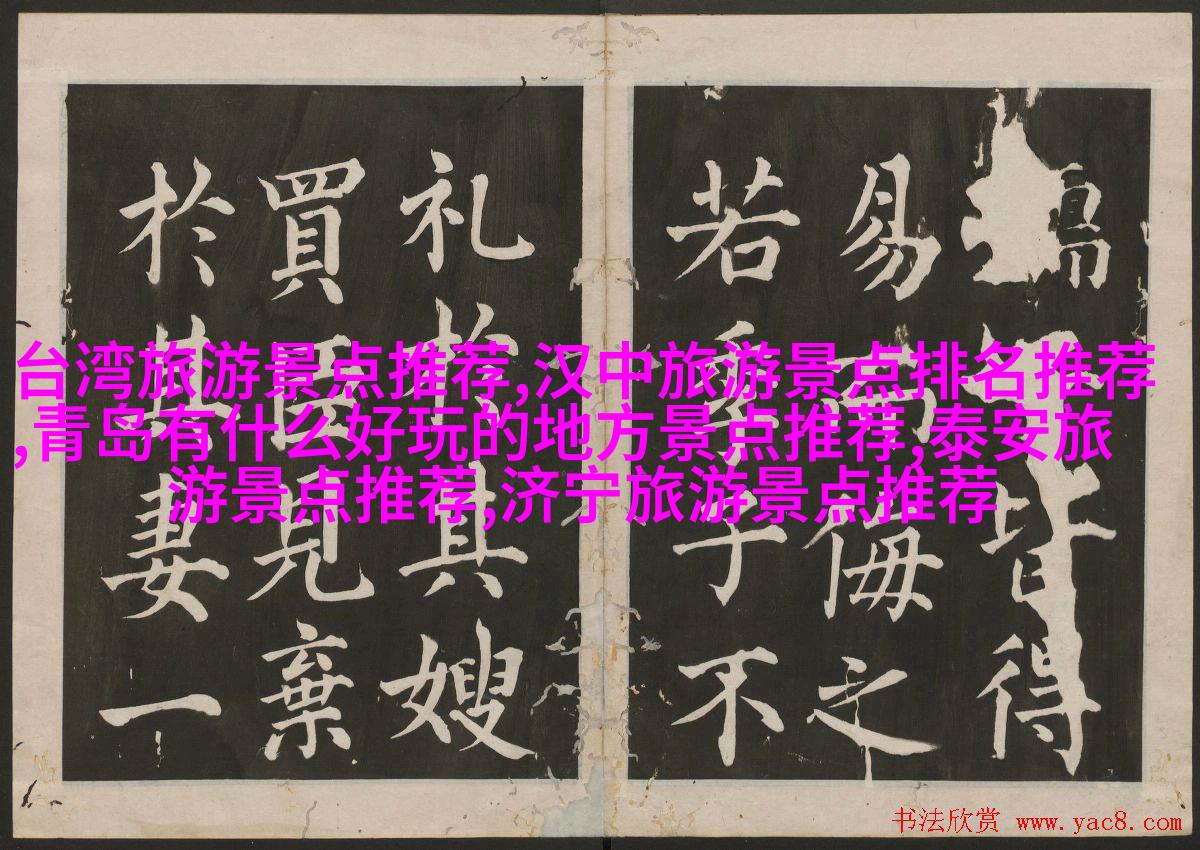 皆得
易而侮之
若季子不
礼於其嫂
買臣見棄
於其妻一
台湾旅游景点推荐,汉中旅游景点排名推荐
,青岛有什么好玩的地方景点推荐,泰安旅
游景点推荐,济宁旅游景点推荐
书法欣赏 www.yac8.com